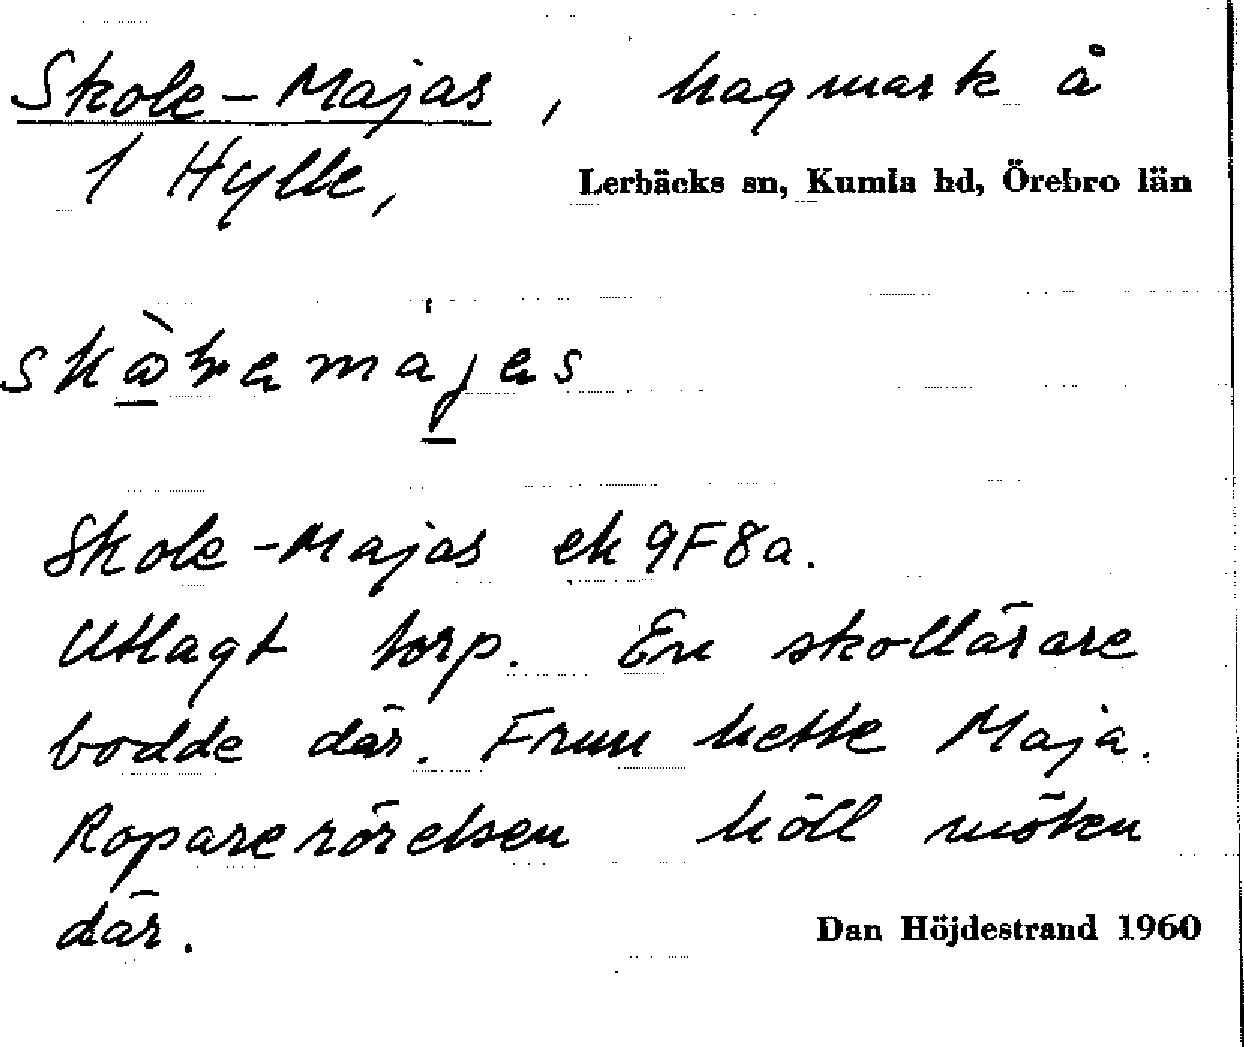 Skole-Majas, hagmark å
1 Hylle,
Lerbäcks sn, Kumla hd, Örebro län
Skole-Majas ek 9F8a.
Utlagt torp. En skollärare
bodde där. Frun hette Maja.
Roparerörelsen höll möten
där.
Dan Höjdestrand 1960